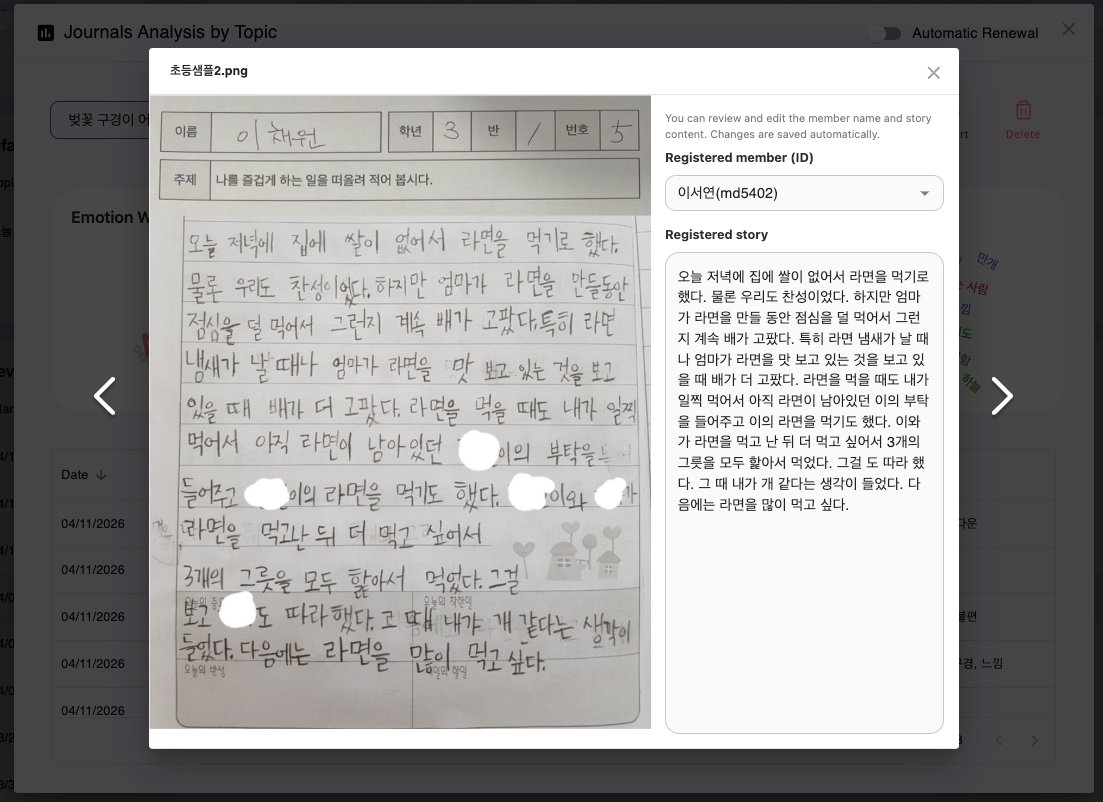 Journals Analysis by Topic
Automatic Renewal
벚꽃 구경이 어
Delete
Emotion W
만개
사람
하늘
Date
04/11/2026
04/11/2026
04/11/2026
04/11/2026
04/11/2026
다운
불편
구경, 느낌
초등샘플2.png
이름 이채원 학년 3 반 1 번호 5
주제 나를 즐겁게 하는 일을 떠올려 적어 봅시다.
오늘 저녁에 집에 쌀이 없어서 라면을 먹기로 했다.
물론 우리도 찬성이었다. 하지만 엄마가 라면을 만들동안
점심을 덜 먹어서 그런지 계속 배가 고팠다. 특히 라면
냄새가 날 때나 엄마가 라면을 맛 보고 있는 것을 보고
있을 때 배가 더 고팠다. 라면을 먹을 때도 내가 일찍
먹어서 아직 라면이 남아있던 이의 부탁을
들어주고 이의 라면을 먹기도 했다. 이와 가
라면을 먹고난 뒤 더 먹고 싶어서
3개의 그릇을 모두 핥아서 먹었다. 그걸
오늘의 착한일
보고 도 따라했다. 그 때 내가 개 같다는 생각이
들었다. 다음에는 라면을 많이 먹고 싶다.
오늘의 반성
You can review and edit the member name and story
content. Changes are saved automatically.
Registered member (ID)
이서연(md5402)
Registered story
오늘 저녁에 집에 쌀이 없어서 라면을 먹기로
했다. 물론 우리도 찬성이었다. 하지만 엄마
가 라면을 만들 동안 점심을 덜 먹어서 그런
지 계속 배가 고팠다. 특히 라면 냄새가 날 때
나 엄마가 라면을 맛 보고 있는 것을 보고 있
을 때 배가 더 고팠다. 라면을 먹을 때도 내가
일찍 먹어서 아직 라면이 남아있던 이의 부탁
을 들어주고 이의 라면을 먹기도 했다. 이와
가 라면을 먹고 난 뒤 더 먹고 싶어서 3개의
그릇을 모두 핥아서 먹었다. 그걸 도 따라 했
다. 그 때 내가 개 같다는 생각이 들었다. 다
음에는 라면을 많이 먹고 싶다.